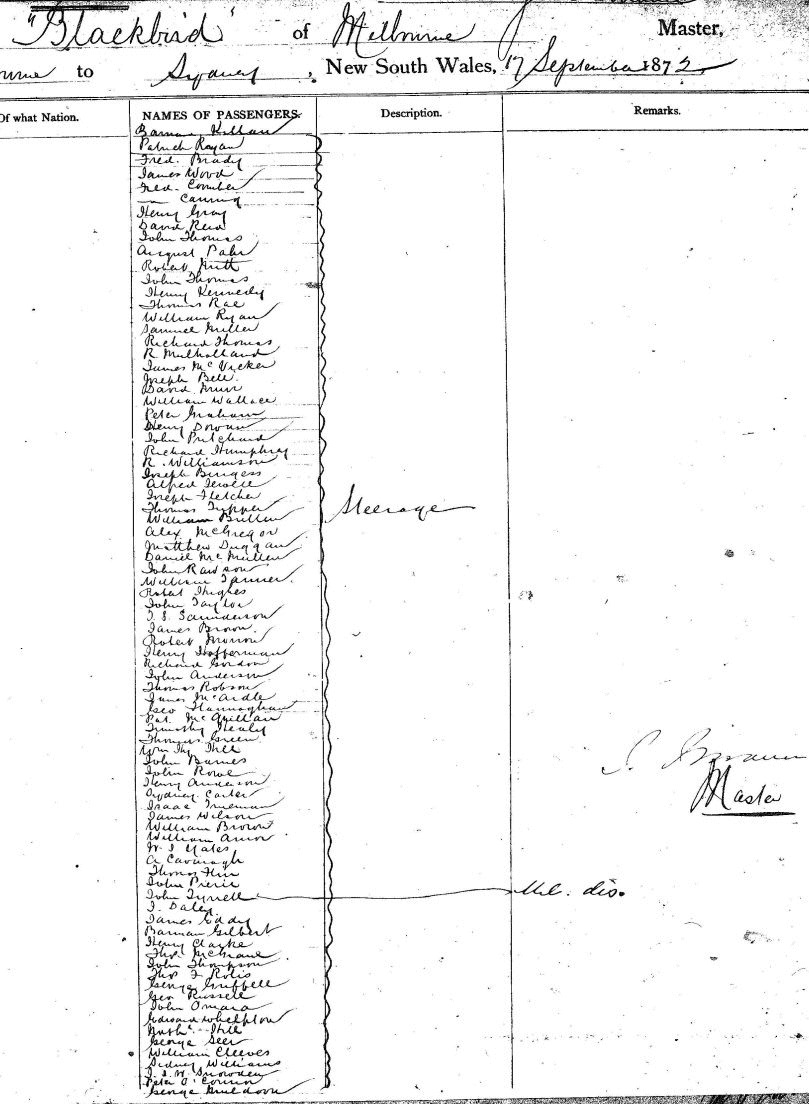 "Blackbird" of Melbourne Master,
to Sydney, New South Wales, 17 September 1872
Of what Nation. NAMES OF PASSENGERS. Description. Remarks.
Patrick Rayan
Fred. Brady
James Wood
Fred. Comber
— Canning
Henry Gray
David Reid
John Thomas
August
Robert
John Thomas
Henry Kennedy
Thomas Rae
William Ryan
Samuel Miller
Richard Thomas
R. Mulholland
James McVicker
Joseph Bell
David Muir
William Wallace
Peter Graham
Henry Dowan
John Pritchard
Richard Humphrey
R. Williamson
Joseph Burgess
Alfred Jewell
Joseph Fletcher
Thomas Tupper Steerage
William
Alex McGregor
Matthew Duggan
Daniel McMullen
John Rawson
William Tanner
Robert Hughes
John Taylor
Saunderson
James Brown
Robert Morrow
Henry Hofferman
Richard Gordon
John Anderson
Thomas Robson
James McArdle
Geo Flannaghan
Pat. McQuillan
Timothy Healy
Thomas Green
Wm Hy Hill
John Barnes
John Rowe
Henry Anderson
Sydney Carter
Isaac Trueman
James Wilson Master
William Brown
William
W. J. Yates
A Cavanagh
Thomas
John Pierce
John Tyrrell dis.
J. Daley
James Eddy
Barman Gilbert
Henry Clarke
Thos McGrane
John Thompson
Thos F Rolis
George Griffell
Geo Russell
John Omara
Edward Whelpton
Hill
George Seer
William Cleeves
Sidney Williams
J. S. W. Snowden
Peter O'Connor
George Muldoon